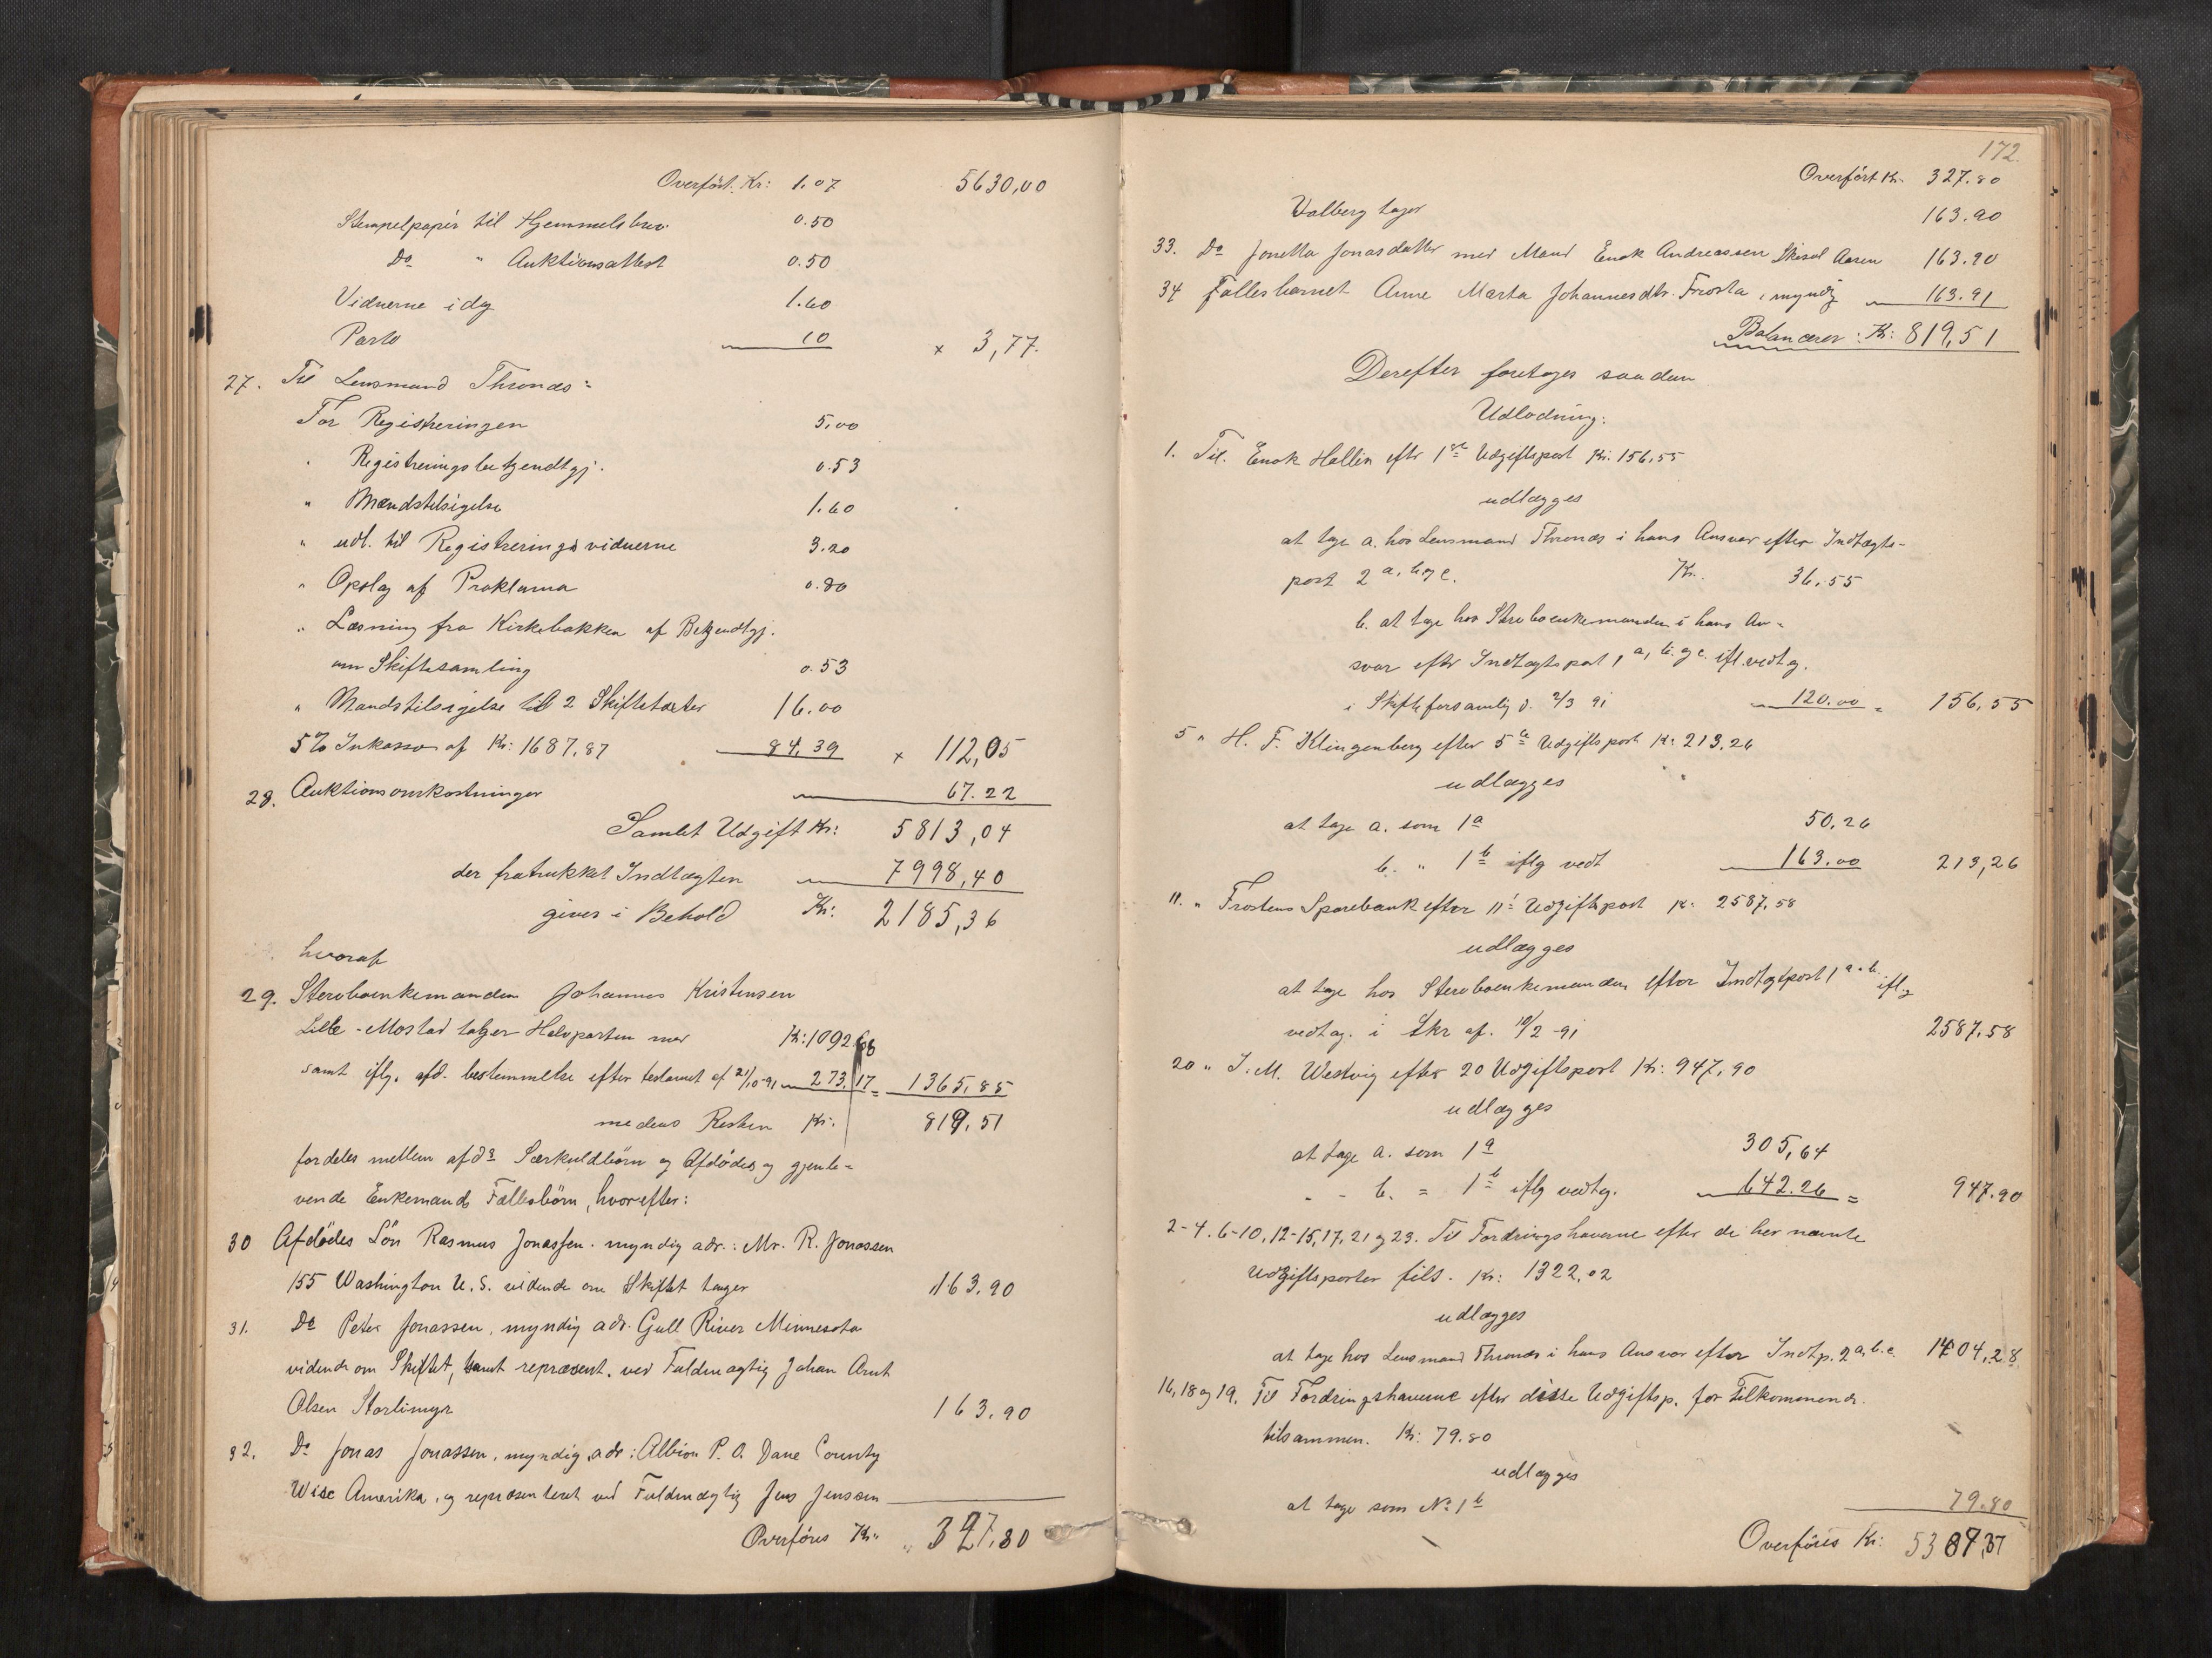 Overført. Kr: 1.07 5630,00
Stempelpapir til Hjemmelsbrev. 0.50
Do " Auktionsattest 0.50
Vidnerne idg 1.60
Porto 10 × 3,77.
27. Til Lensmand Thronæs:
For Registreringen 5,00
" Registreringsbekjendtgj. 0.53
" Mandstilsigelse 1.60
" udl. til Registreringsvidnerne 3.20
" Opslag af Proklama 0.80
" Læsning fra Kirkebakken af Bekjendtgj.
om Skiftesamling 0.53
" Mandstilsigelse til 2 Skiftetaxter 16.00
5% Inkasso af Kr: 1687,87 84,39 × 112,05
28. Auktionsomkostninger 67.22
Samlet Udgift Kr: 5813,04
der fratrukket Indtægten 7998,40
giver i Behold Kr: 2185,36
hvoraf
29. Stervboenkemanden Johannes Kristensen
Lille-Mostad tager Halvparten med Kr: 1092,68
samt iflg. afd. bestemmelse efter testamet af 21/10-91 273.17 = 1365,85
medens Resten Kr. 819.51
fordeles mellem afds Særkuldbørn og Afdødes og gjenle=
vende Enkemands Fællesbørn, hvorefter:
30 Afdødes Søn Rasmus Jonassen. myndig adr.: Mr. R. Jonassen
155 Washington U.S. vidende om Skiftet tager 163.90
31. Do Peter Jonassen, myndig adr. Gull River Minnesota
vidende om Skiftet, samt repræsent. ved Fuldmægtig Johan Arnt
Olsen Storlimyr 163.90
32. Do Jonas Jonassen, myndig, adr: Albion P. O. Dane County
Wisc Amerika, og repræsenteret ved Fuldmægtig Jens Jenssen
Overføres Kr. 327.80
172.
Overført Kr. 327.80
Valberg tager 163.90
33. Do Jonetta Jonasdatter med Mand Enok Andreassen Aasen 163.90
34 Fællesbarnet Anne Marta Johannesdtr. Frosta, myndig 163.91
Balancerer: Kr: 819,51
Derefter foretages saadan
Udlodning:
1. Til. Enok Hallin eftr 1ste Udgiftspost Kr. 156,55
udlægges
at tage a. hos Lensmand Thronæs i hans Ansvar efter Indtægts-
post 2 a, b og c. Kr. 36,55
b. at tage hos Stervboenkemanden i hans An-
svar efter Indtægtspost 1, a, b. og c. ifl. vedtg.
i Skifteforsamlig d. 2/3 91 120.00 = 156,55
5 " H. F. Klingenberg efter 5te Udgiftspost Kr 213.26
udlægges
at tage a. som 1a 50,26
b. " 1b iflg vedt 163.00 213,26
11. " Frostens Sparebank efter 11 Udgiftspost Kr: 2587,58
udlægges
at tage hos Stervboenkemanden efter Indtgtpost 1 a-b. iflg
vedtag. i Skr af. 10/2 -91 2587.58
20 " J. M. Westvig efter 20 Udgiftspost Kr: 947,90
udlægges
at tage a. som 1a 305,64
- - b. = 1b iflg vedtg. 642.26 = 947.90
2-4. 6-10, 12-15, 17, 21 og 23. Til Fordringshaverne efter de her nævnte
Udgiftsposter tils. Kr: 1322,02
udlægges
at tage hos Lensmand Thronæs i hans Ansvar efter Indtp. 2 a, b. c. 1404,28
16, 18 og 19. Til Fordringshaverne efter disse Udgiftsp. for Tilkommende.
tilsammen. Kr: 79.80
udlægges
at tage som No 1b 79.80
Overføres Kr: 5389,37